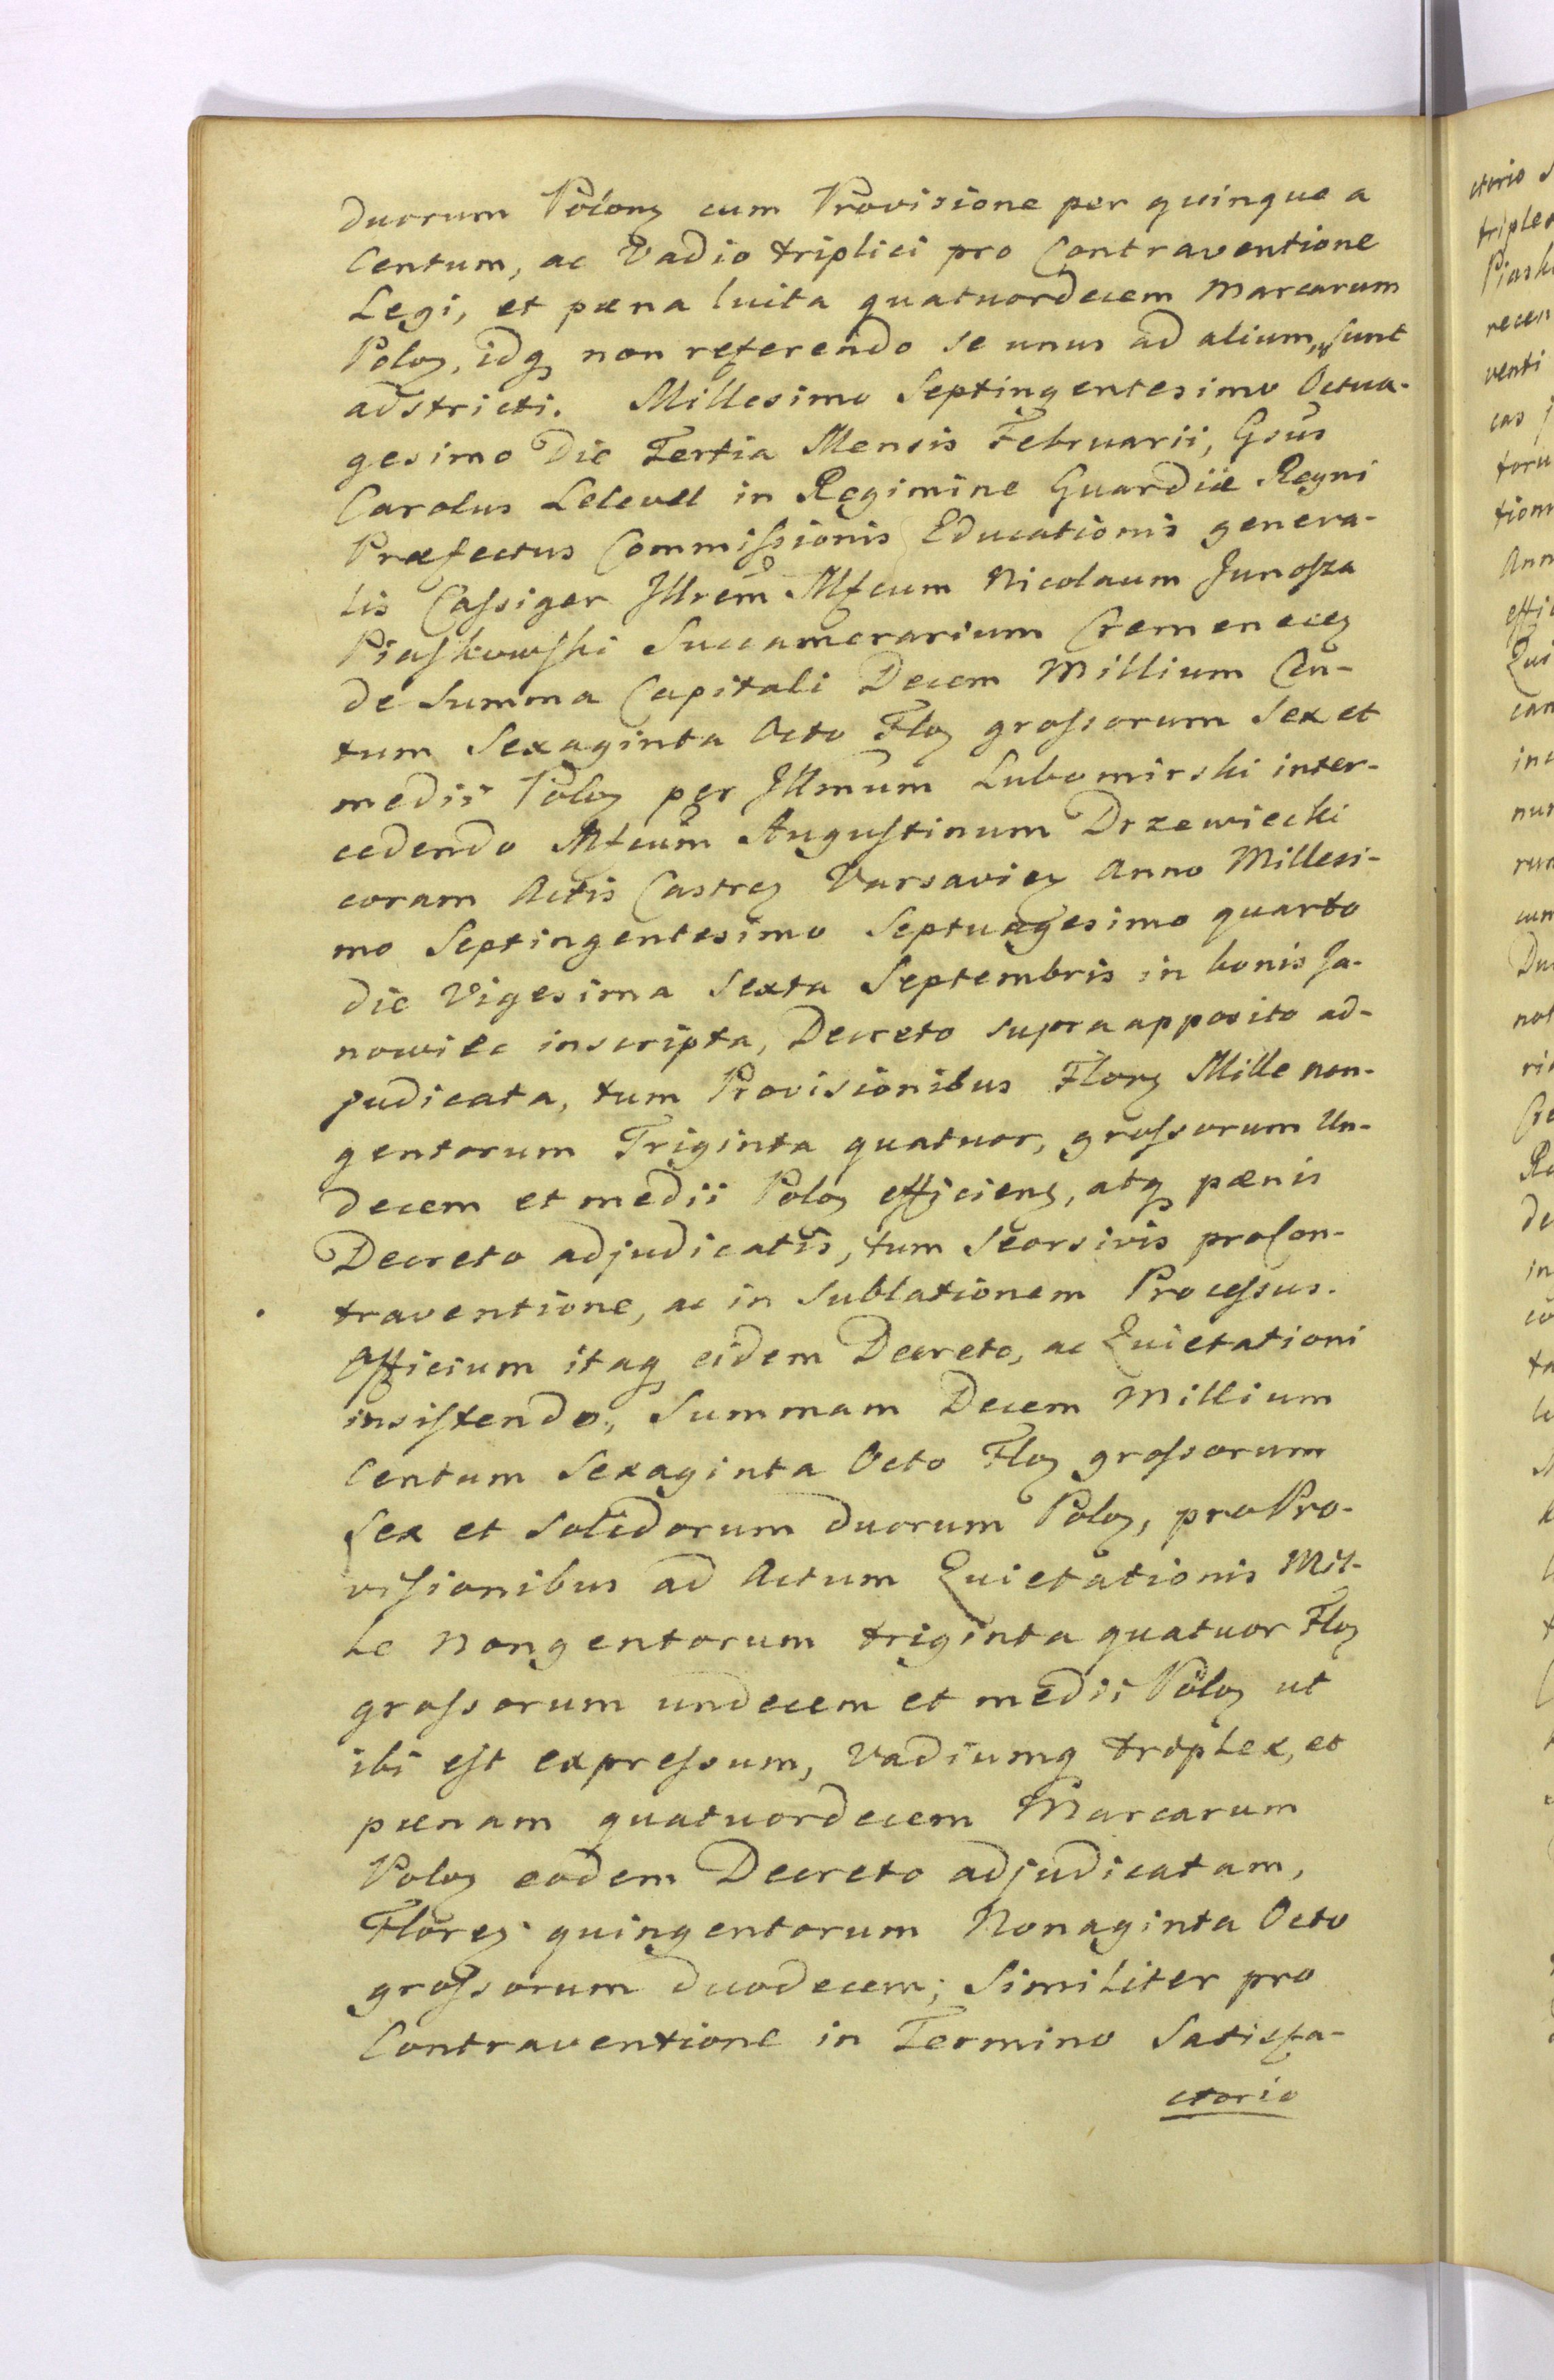 duorum Polonꝫ cum Provisione per quinque a
Centum, ac Vadio triplici pro Contraventione
Legi, et pæna luita quatuordecem Marcarum
Poloꝫ, idqꝫ non referendo se unus ad alium, sunt
adstricti. Millesimo Septingentesimo Octua-
gesimo Die Tertia Mensis Februarii, Gsus
Carolus Lelevel in Regimine Guardiæ Regni
Præfectus Commiſsionis Educationis genera-
lis Caſsiger Jllrem Mfcum Nicolaum Junoſza
Piaſkowſki Succamerarium Cremeneceꝫ
de Summa Capitali Decem Millium Cen-
tum Sexaginta Octo Floꝫ groſsorum Sex et
medii Poloꝫ per Jllmum Lubomirski inter-
cedendo Mfcum Auguſtinum Drzewiecki
coram Actis Castreꝫ Varsavieꝫ Anno Millesi-
mo Septingentesimo Septuagesimo quarto
die Vigesima Sexta Septembris in bonis Ja-
nowiec inscripta, Decreto supra apposito ad-
judicata, tum Provisionibus Florꝫ Mille non-
gentorum Triginta quatuor, groſsorum Un-
decem et medii Poloꝫ efficienꝫ, atqꝫ pænis
Decreto adjudicatis, tum Seorsivis pro Con-
traventione, ac in Sublationem Proceſsus.
Officium itaqꝫ eidem Decreto, ac Quietationi
insiſtendo, Summam Decem Millium
Centum Sexaginta Octo Floꝫ groſsorum
Sex et Solidorum duorum Poloꝫ, pro Pro-
viſionibus ad Actum Quietationis Mil-
le Nongentorum triginta quatuor Floꝫ
groſsorum undecem et medii Poloꝫ ut
ibi eſt expreſsum, Vadiumqꝫ triplex, et
pænam quatuordecem Marcarum
Poloꝫ eodem Decreto adjudicatam,
Floreꝫ quingentorum Nonaginta Octo
groſsorum duodecem; Similiter pro
Contraventione in Termino Satisfa-
ctorio